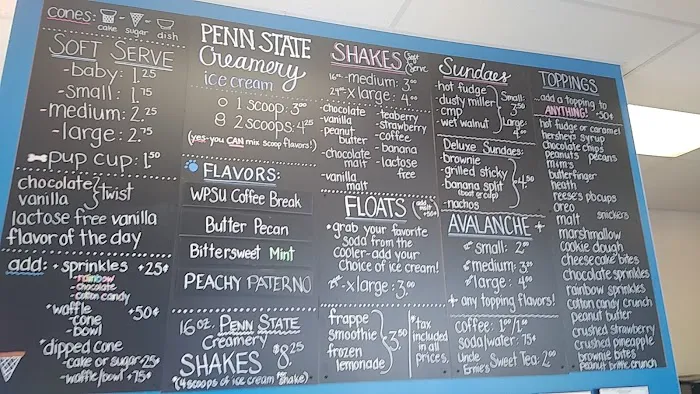 cones:
cake sugar dish
SOFT SERVE
-baby: 1.25
-small: 1.75
-medium: 2.25
-large: 2.75
pup cup: 1.50
chocolate
vanilla
} twist
lactose free vanilla
flavor of the day
add: + sprinkles +25¢
-rainbow
-chocolate
-cotton candy
*waffle +50¢
-cone
-bowl
*dipped cone
-cake or sugar +25¢
-waffle/bowl +75¢
PENN STATE
Creamery
ice cream
1 scoop: 3.00
2 scoops: 4.25
(yes-you CAN mix scoop flavors!)
FLAVORS:
WPSU Coffee Break
Butter Pecan
Bittersweet Mint
PEACHY PATERNO
16 oz. PENN STATE
Creamery
SHAKES $8.25
(4 scoops of ice cream per shake)
SHAKES (soft serve)
16oz -medium: 3.00
24oz -x large: 4.00
-chocolate
-vanilla
-peanut butter
-chocolate malt
-vanilla malt
-teaberry
-strawberry
-coffee
-banana
-lactose free
FLOATS (add malt +50¢)
*grab your favorite
soda from the
cooler-add your
choice of ice cream!
-x-large: 3.00
frappe
smoothie
frozen
lemonade
} 3.50
*tax
included
in all
prices.
Sundaes
-hot fudge
-dusty miller
-cmp
-wet walnut
Small: 3.50
Large: 4.00
Deluxe Sundaes:
-brownie
-grilled sticky
-banana split
(boat or cup)
-nachos
} 4.50
AVALANCHE
small: 2.00
medium: 3.00
large: 4.00
+ any topping flavors!
coffee: 1.00/1.50
soda/water: 75¢
Uncle Ernie's Sweet Tea: 2.00
TOPPINGS
..add a topping to
ANYTHING! +50¢
hot fudge or caramel
hershey's syrup
chocolate chips
peanuts pecans
m&m's
butterfinger
heath
reese's pb cups
oreo chips
malt snickers
marshmallow
cookie dough
cheesecake bites
chocolate sprinkles
rainbow sprinkles
cotton candy crunch
peanut butter
crushed strawberry
crushed pineapple
brownie bites
peanut brittle crunch